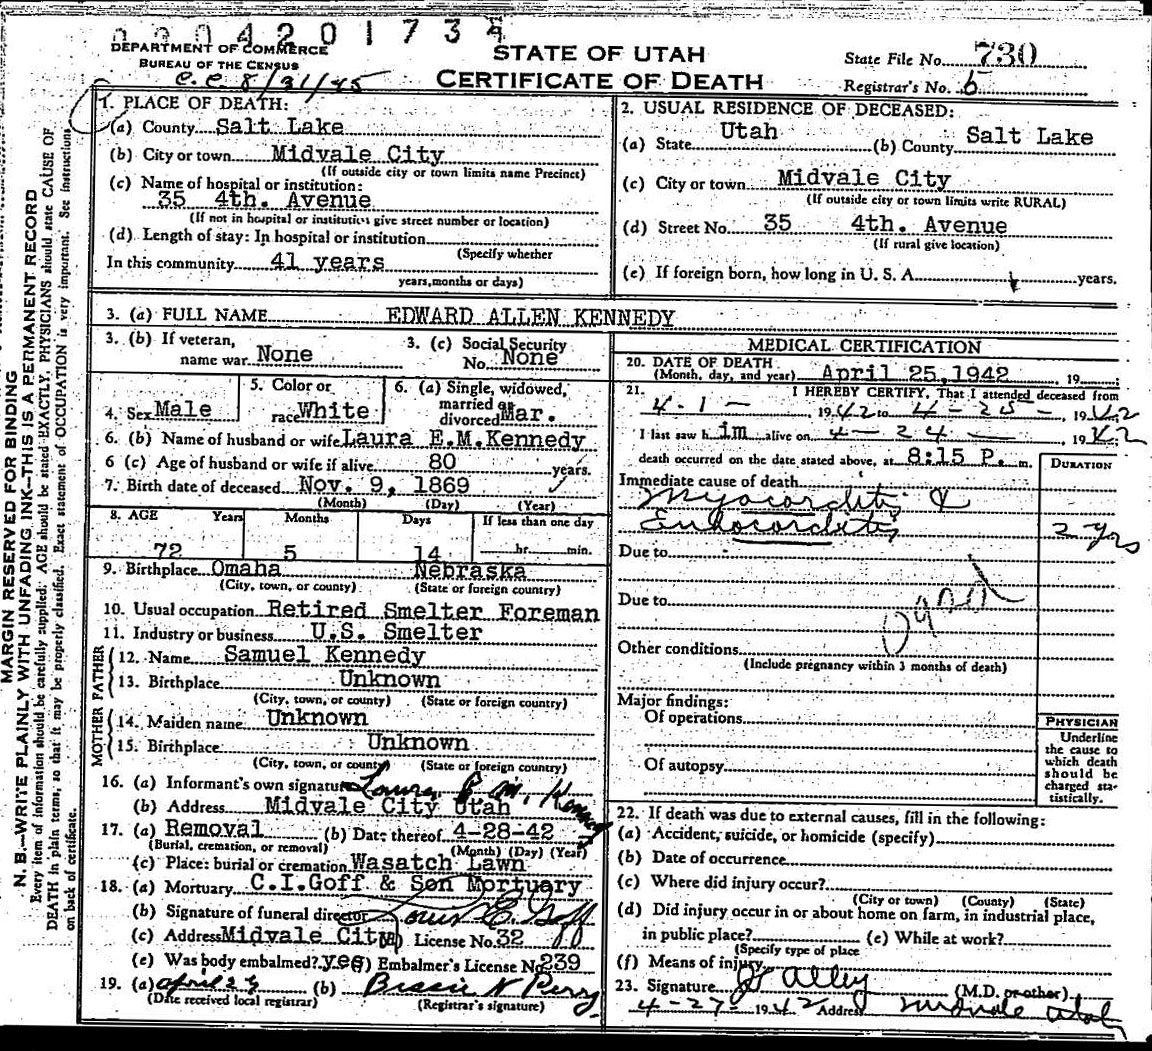 0 0 4 2 0 1 7 3
DEPARTMENT OF COMMERCE
BUREAU OF THE CENSUS
C.C. 8/31/45
STATE OF UTAH
CERTIFICATE OF DEATH
State File No. 730
Registrar's No. 6
MARGIN RESERVED FOR BINDING
N. B.—WRITE PLAINLY WITH UNFADING INK—THIS IS A PERMANENT RECORD
Every item of information should be carefully supplied: AGE should be stated EXACTLY. PHYSICIANS should state CAUSE OF
DEATH in plain terms, so that it may be properly classified. Exact statement of OCCUPATION is very important. See instructions
on back of certificate.
1. PLACE OF DEATH:
(a) County Salt Lake
(b) City or town Midvale City
(If outside city or town limits name Precinct)
(c) Name of hospital or institution:
35 4th. Avenue
(If not in hospital or institution give street number or location)
(d) Length of stay: In hospital or institution
(Specify whether
In this community 41 years
years, months or days)
2. USUAL RESIDENCE OF DECEASED:
(a) State Utah (b) County Salt Lake
(c) City or town Midvale City
(If outside city or town limits write RURAL)
(d) Street No. 35 4th. Avenue
(If rural give location)
(e) If foreign born, how long in U. S. A. years.
3. (a) FULL NAME EDWARD ALLEN KENNEDY
3. (b) If veteran,
name war None
3. (c) Social Security
No. None
4. Sex Male
5. Color or
race White
6. (a) Single, widowed,
married or
divorced Mar.
6. (b) Name of husband or wife Laura E.M.Kennedy
6 (c) Age of husband or wife if alive 80 years.
7. Birth date of deceased Nov. 9, 1869
(Month) (Day) (Year)
8. AGE Years Months Days If less than one day
72 5 14 hr. min.
9. Birthplace Omaha Nebraska
(City, town, or county) (State or foreign country)
10. Usual occupation Retired Smelter Foreman
11. Industry or business U.S. Smelter
FATHER
12. Name Samuel Kennedy
13. Birthplace Unknown
(City, town, or county) (State or foreign country)
MOTHER
14. Maiden name Unknown
15. Birthplace Unknown
(City, town, or county) (State or foreign country)
16. (a) Informant's own signature Laura E. M. Kennedy
(b) Address Midvale City Utah
17. (a) Removal (b) Date thereof 4-28-42
(Burial, cremation, or removal) (Month) (Day) (Year)
(c) Place: burial or cremation Wasatch Lawn
18. (a) Mortuary C.I.Goff & Son Mortuary
(b) Signature of funeral director Louis E. Goff
(c) Address Midvale City (d) License No. 32
(e) Was body embalmed? yes (f) Embalmer's License No 239
19. (a) April 28 (b) Bessie N Perry
(Date received local registrar) (Registrar's signature)
MEDICAL CERTIFICATION
20. DATE OF DEATH
(Month, day, and year) April 25, 1942 19
21. I HEREBY CERTIFY, That I attended deceased from
4-1- 1942 to 4-25- 1942
I last saw him alive on 4-24- 1942
death occurred on the date stated above, at 8:15 P. m.
DURATION
Immediate cause of death
Myocarditis &
Endocarditis 2 yrs
Due to
Due to
Other conditions
(Include pregnancy within 3 months of death)
Major findings:
Of operations
Of autopsy
PHYSICIAN
Underline
the cause to
which death
should be
charged sta-
tistically.
22. If death was due to external causes, fill in the following:
(a) Accident, suicide, or homicide (specify)
(b) Date of occurrence
(c) Where did injury occur?
(City or town) (County) (State)
(d) Did injury occur in or about home on farm, in industrial place,
in public place? (e) While at work?
(Specify type of place
(f) Means of injury
23. Signature Alley (M.D. or other)
4-27- 1942 Address Midvale Utah